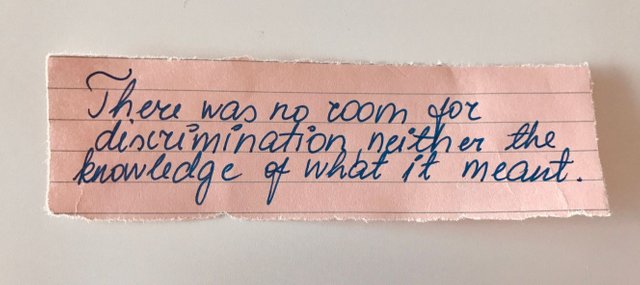 There was no room for
discrimination neither the
knowledge of what it meant.